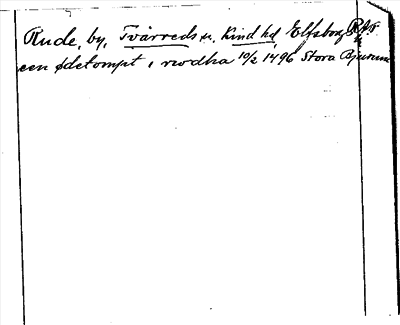 Rude, by, Tvärreds sn. Kind hd Elfsborg
een ødetompt i rwdha 10/2 1496 Stora Bjurum